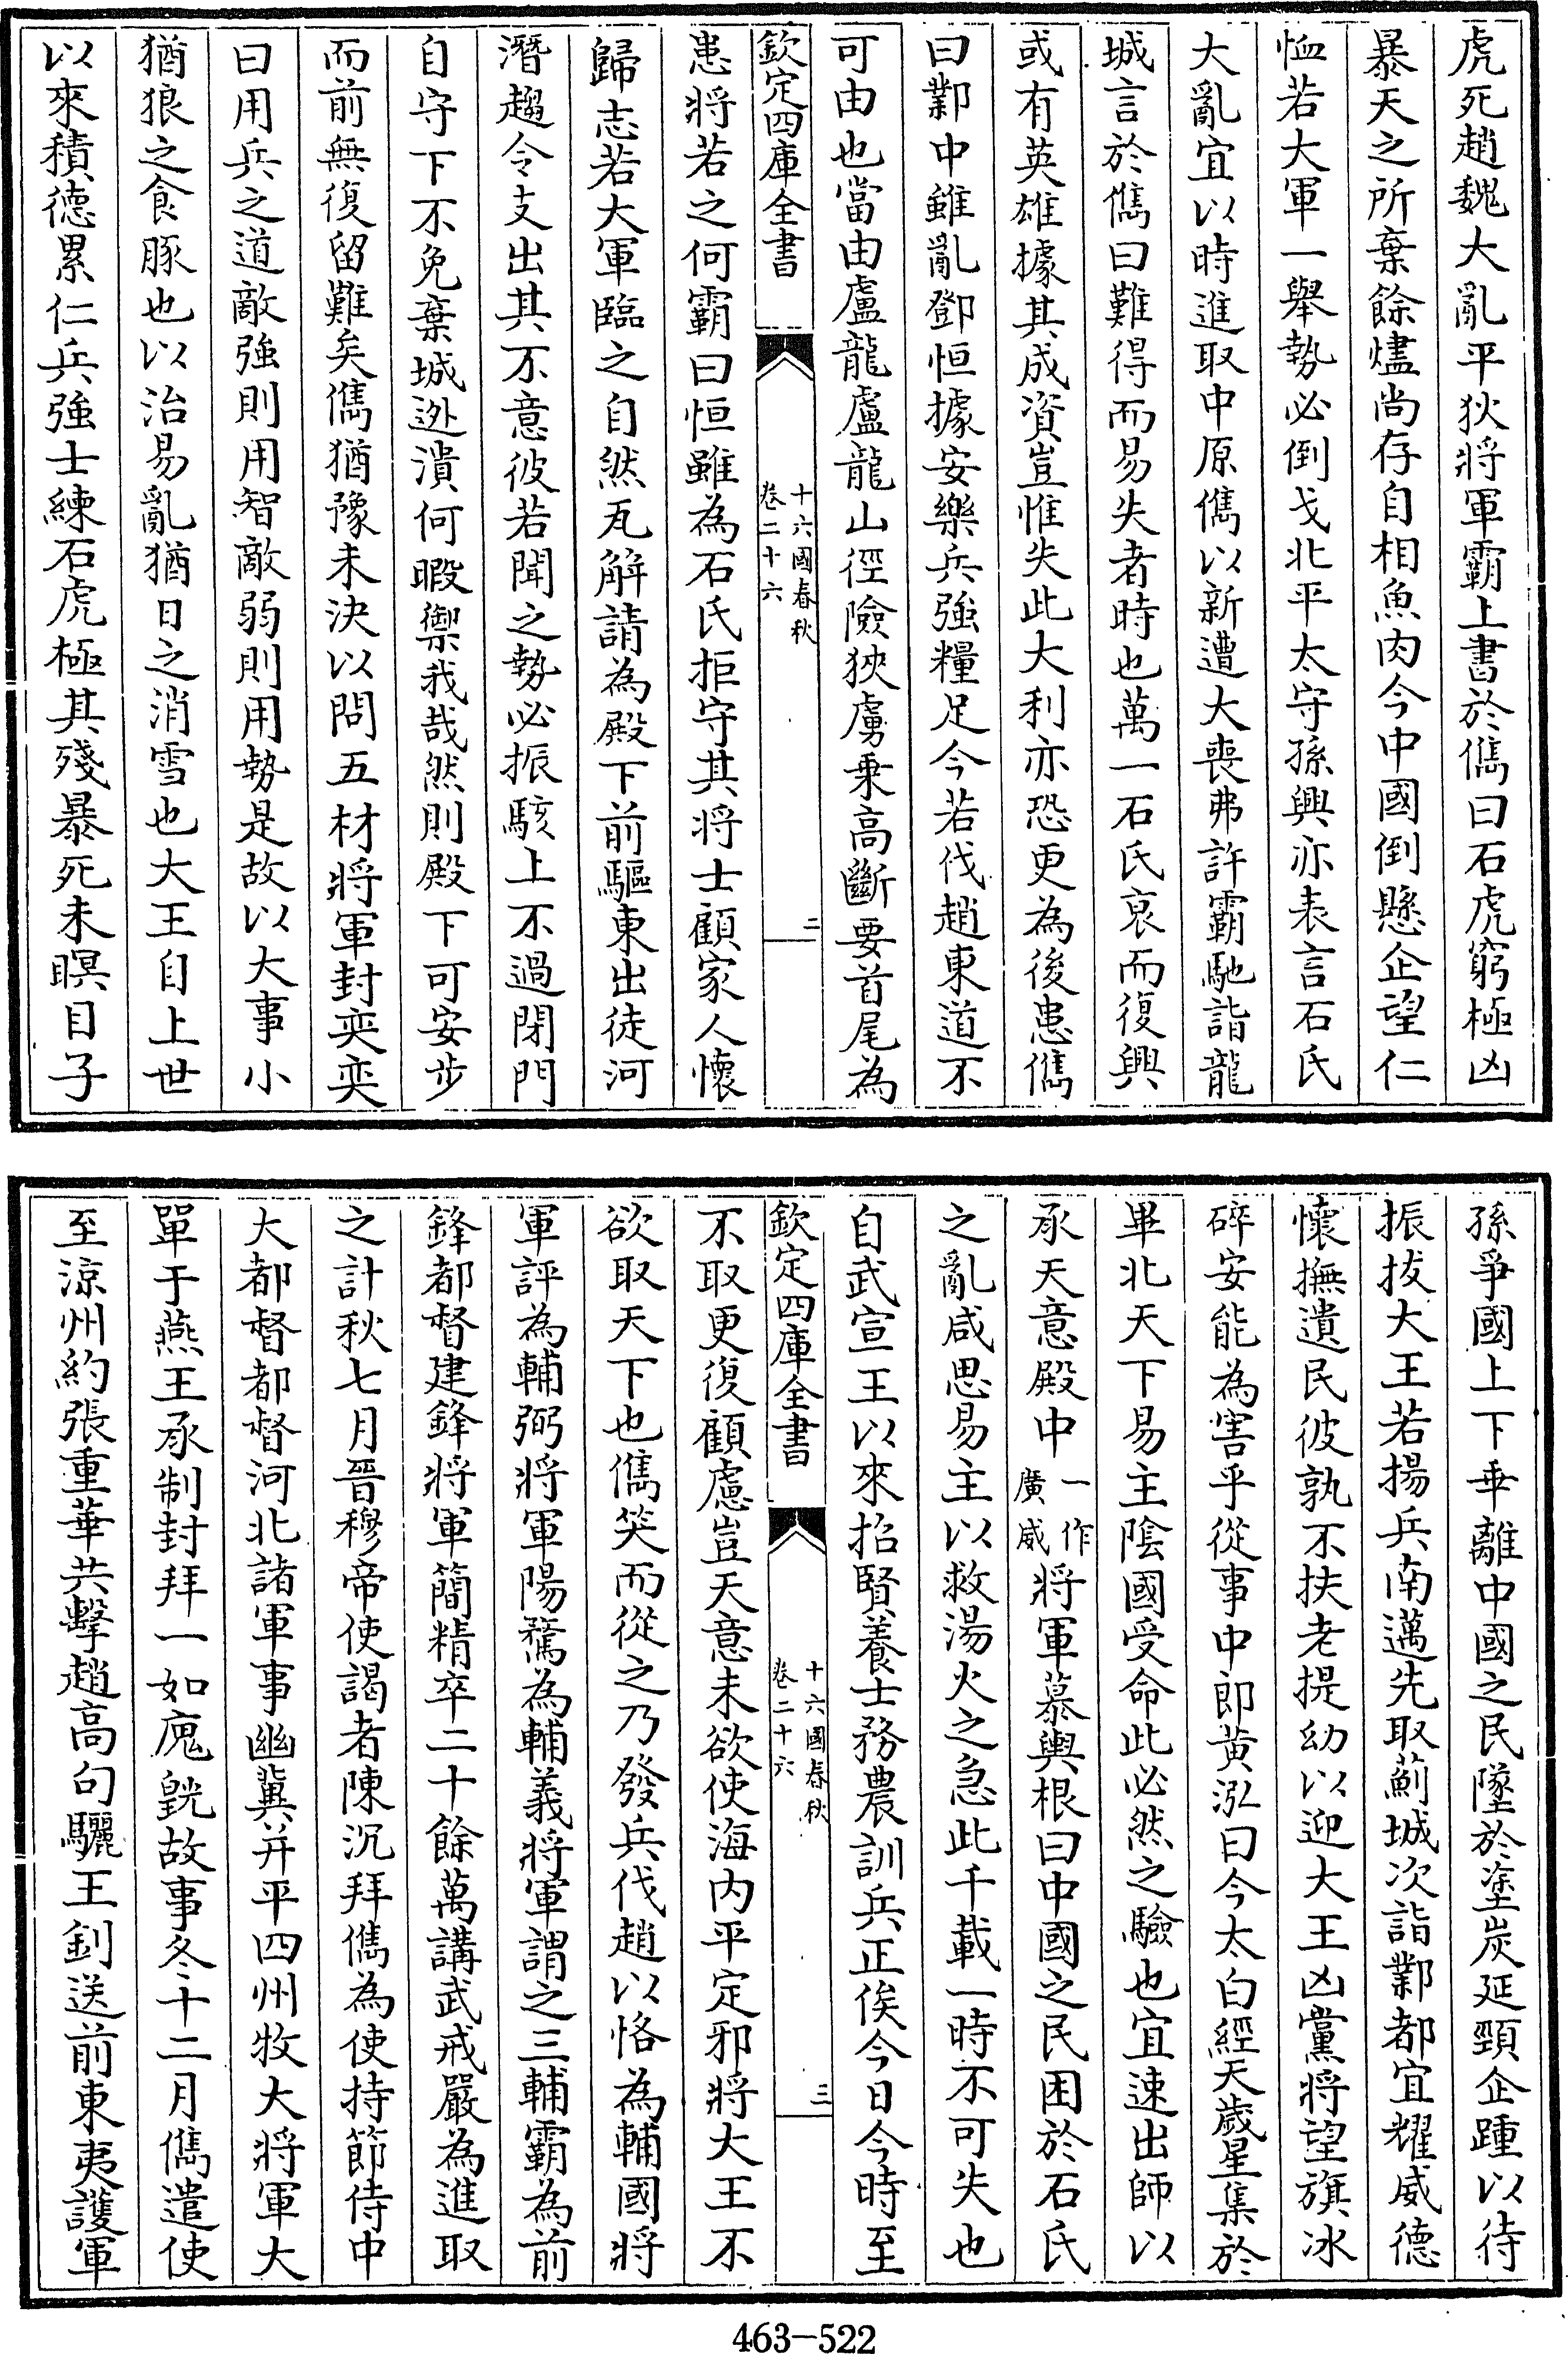 虎死趙魏大亂平狄將軍霸上書於儁曰石虎窮極凶
暴天之所棄餘燼尚存自相魚肉今中國倒懸企望仁
恤若大軍一舉勢必倒戈北平太守孫興亦表言石氏
大亂宜以時進取中原儁以新遭大喪弗許霸馳詣龍
城言於儁曰難得而易失者時也萬一石氏衰而復興
或有英雄據其成資豈惟失此大利亦恐更為後患儁
曰鄴中雖亂鄧恒據安樂兵強糧足今若伐趙東道不
可由也當由盧龍盧龍山徑險狹虜乗高斷要首尾為
欽定四庫全書
十六國春秋
卷二十六
二
患將若之何霸曰恒雖為石氏拒守其將士顧家人懷
歸志若大軍臨之自然瓦解請為殿下前驅東出徒河
潛趨令支出其不意彼若聞之勢必振駭上不過閉門
自守下不免棄城迯潰何暇禦我哉然則殿下可安步
而前無復留難矣儁猶豫未決以問五材將軍封奕奕
曰用兵之道敵強則用智敵弱則用勢是故以大事小
猶狼之食豚也以治易亂猶日之消雪也大王自上世
以來積德累仁兵強士練石虎極其殘暴死未暝目子
孫爭國上下乖離中國之民墜於塗炭延頸企踵以待
振拔大王若揚兵南邁先取薊城次詣鄴都宜耀威德
懷撫遺民彼孰不扶老提幼以迎大王凶黨將望旗冰
碎安能為害乎從事中郎黃泓曰今太白經天歲星集於
畢北天下易主陰國受命此必然之驗也宜速出師以
承天意殿中一作廣威將軍慕輿根曰中國之民困於石氏
之亂咸思易主以救湯火之急此千載一時不可失也
自武宣王以來招賢養士務農訓兵正俟今日今時至
欽定四庫全書
十六國春秋
卷二十六
三
不取更復顧慮豈天意未欲使海內平定邪將大王不
欲取天下也儁笑而從之乃發兵伐趙以恪為輔國將
軍評為輔弼將軍陽騖為輔義將軍謂之三輔霸為前
鋒都督建鋒將軍簡精卒二十餘萬講武戒嚴為進取
之計秋七月晉穆帝使謁者陳沉拜儁為使持節侍中
大都督都督河北諸軍事幽冀并平四州牧大將軍大
單于燕王承制封拜一如廆皝故事冬十二月儁遣使
至涼州約張重華共擊趙高句驪王釗送前東夷護軍
463-522